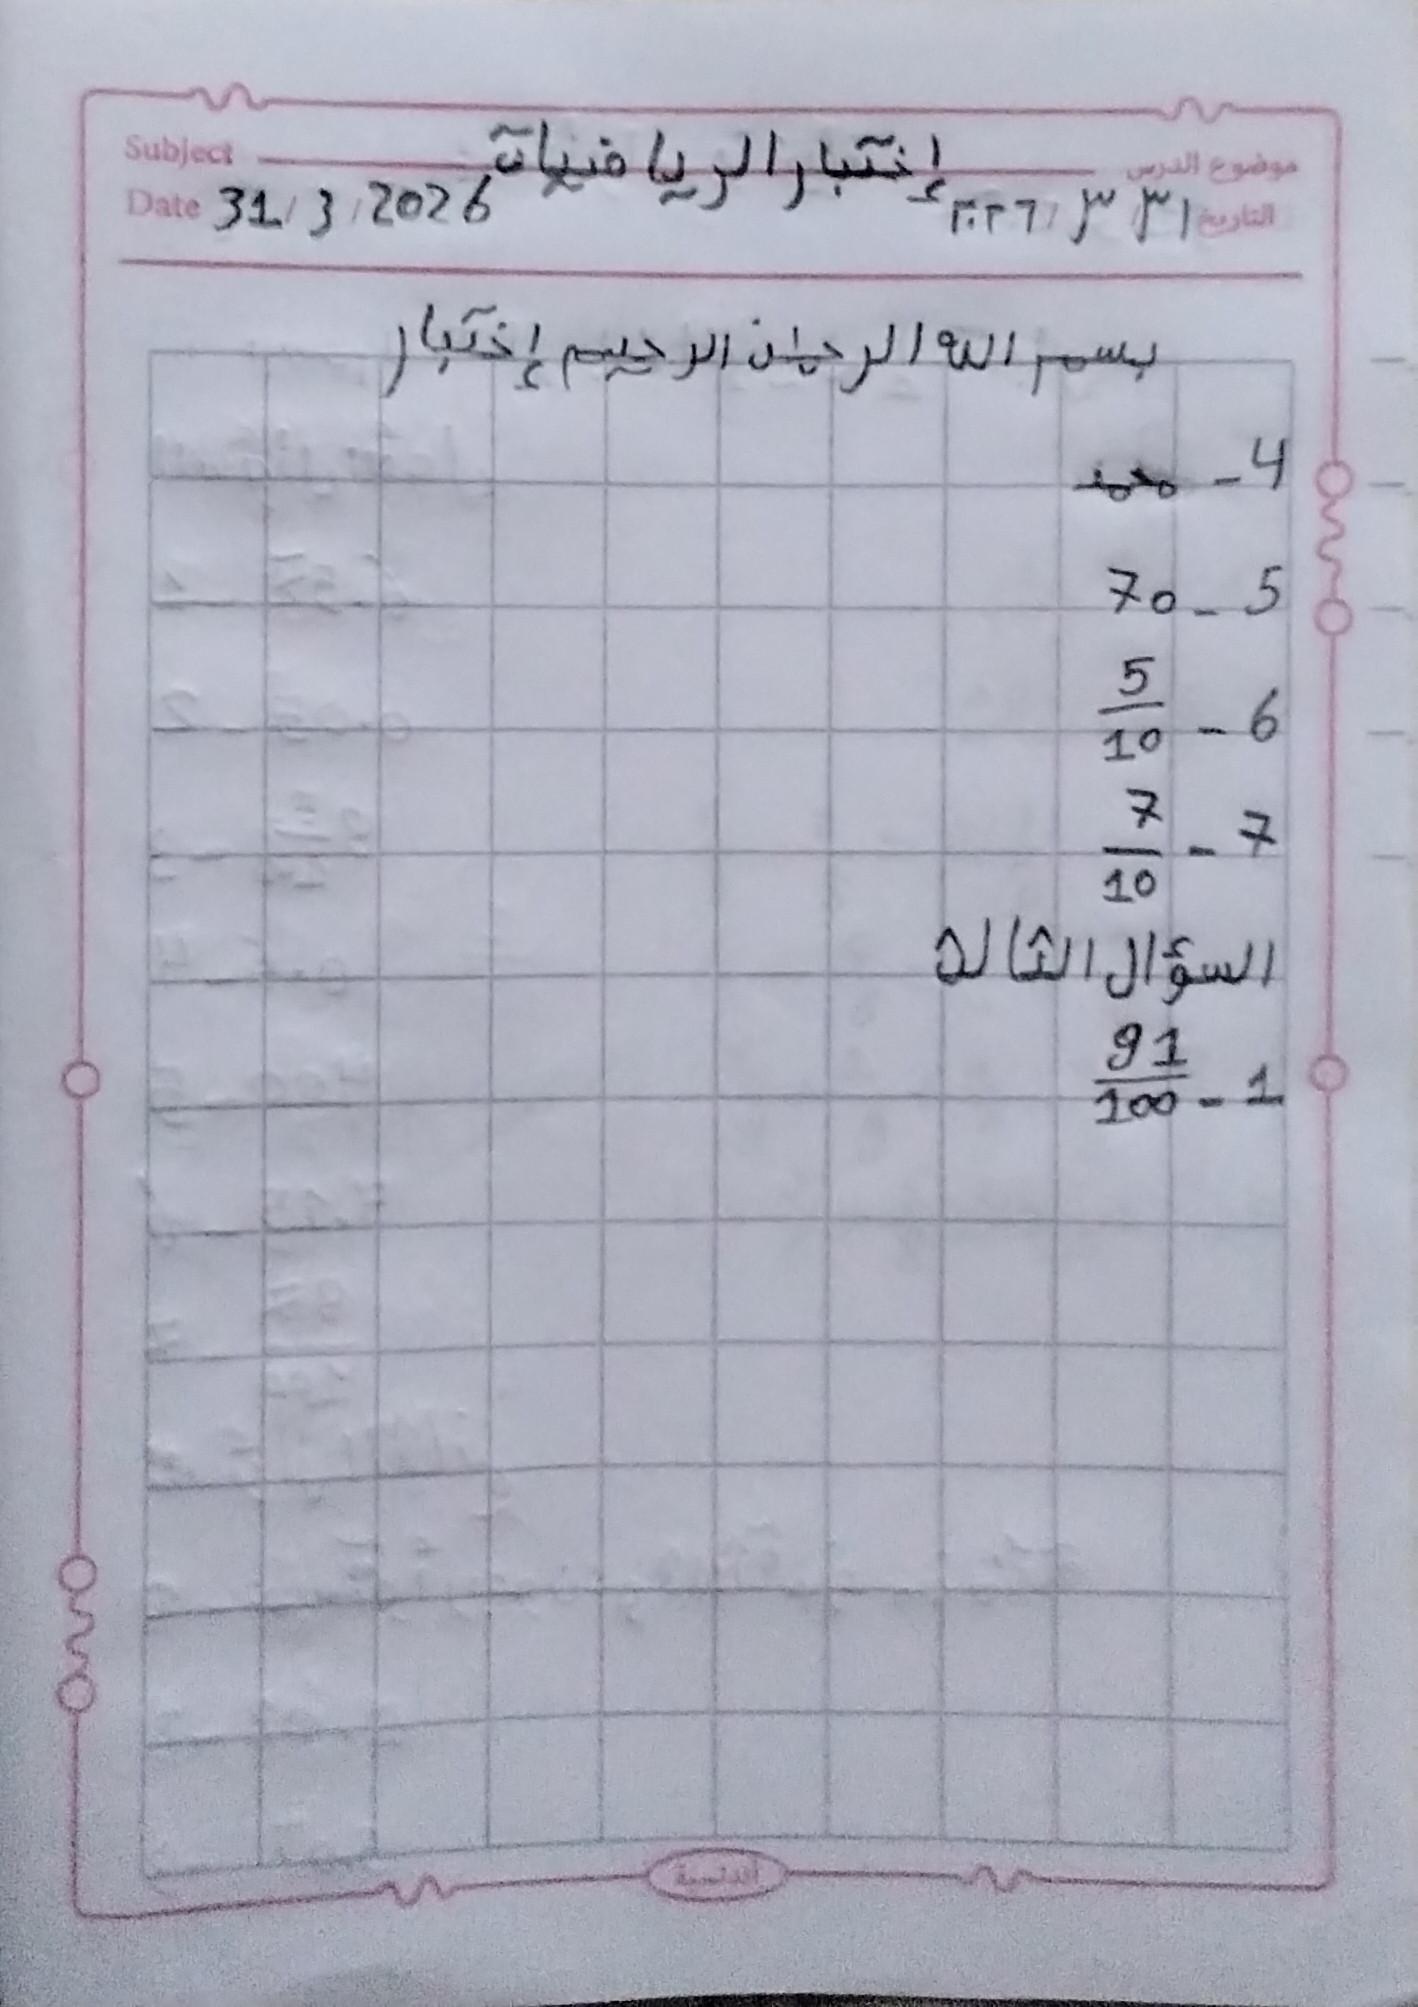 Subject إختبار الرياضيات موضوع الدرس
Date 31/3/2026 التاريخ ٣١/٣/٢٠٢٦
بسم الله الرحمان الرحيم إختبار
4 - محمد
5 - 70
6 - 5/10
7 - 7/10
السؤال الثالث
1 - 91/100